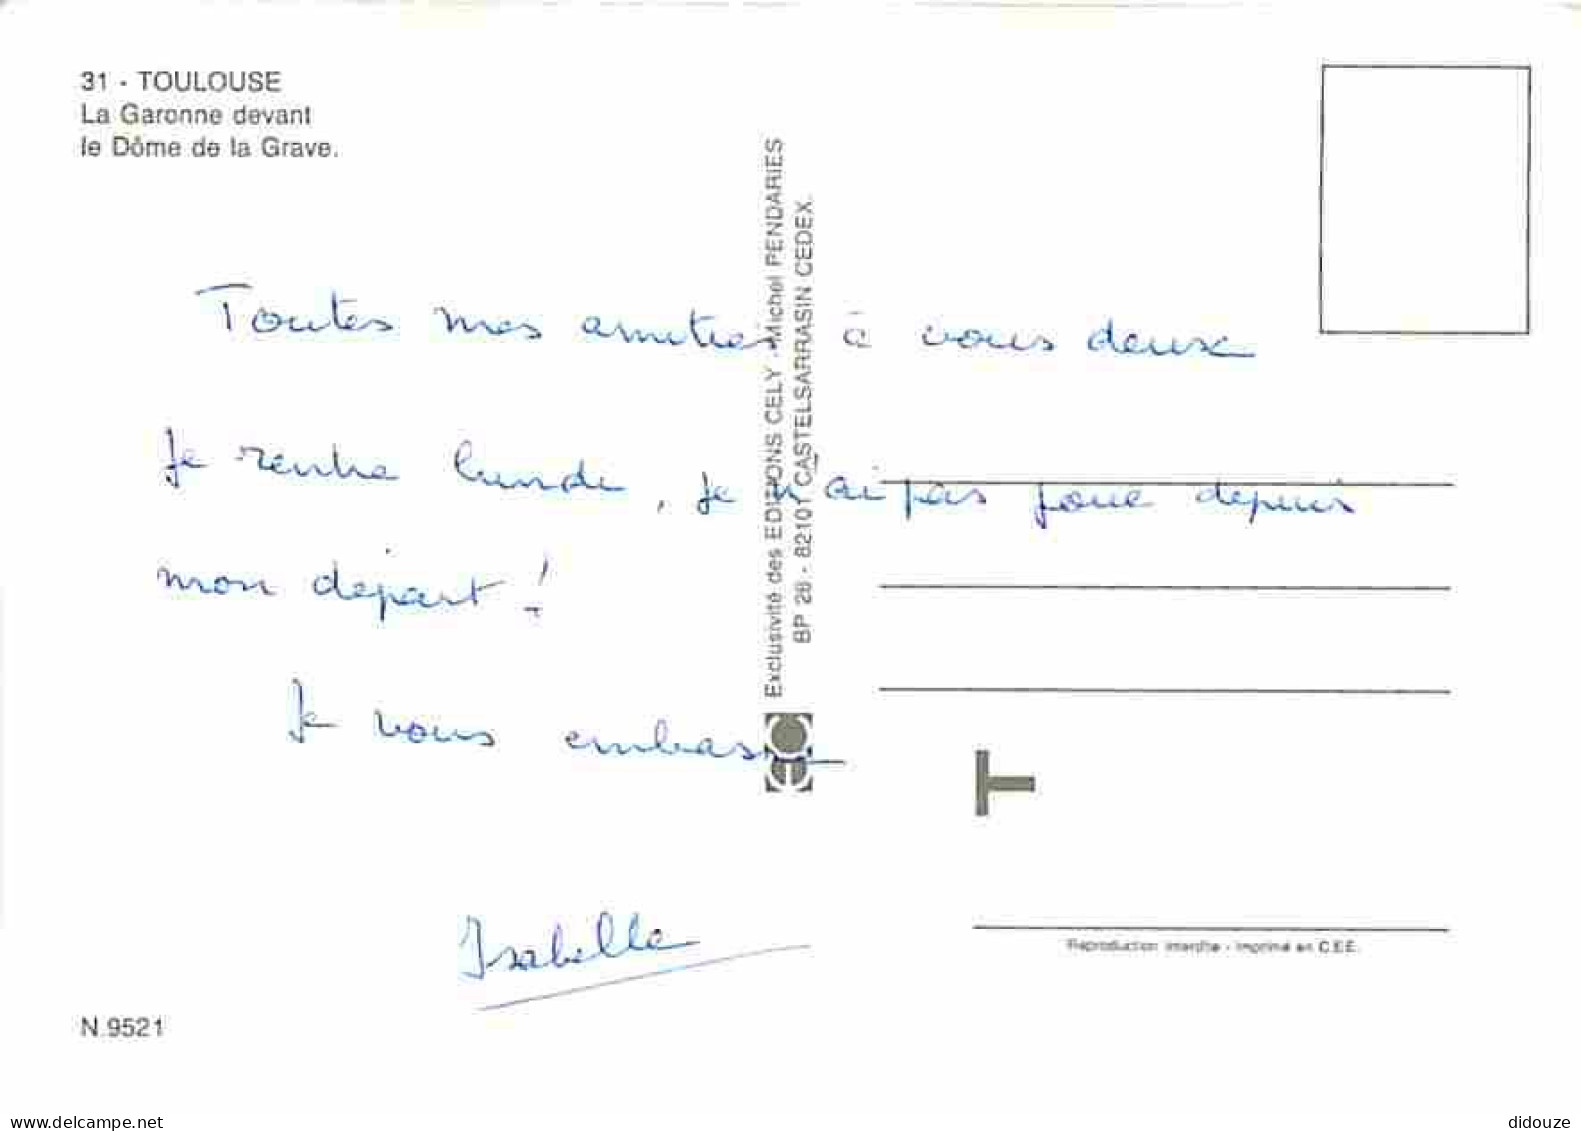 31 - TOULOUSE
La Garonne devant
le Dôme de la Grave.
Toutes mes amitiés à vous deux
Je rentre lundi, je n'ai pas joué depuis
mon départ !
Je vous embrasse
Isabelle
N.9521
Exclusivité des EDITIONS CELY - Michel PENDARIES
BP 28 - 82101 CASTELSARRASIN CEDEX.
Reproduction interdite - Imprimé en C.E.E.
www.delcampe.net
didouze